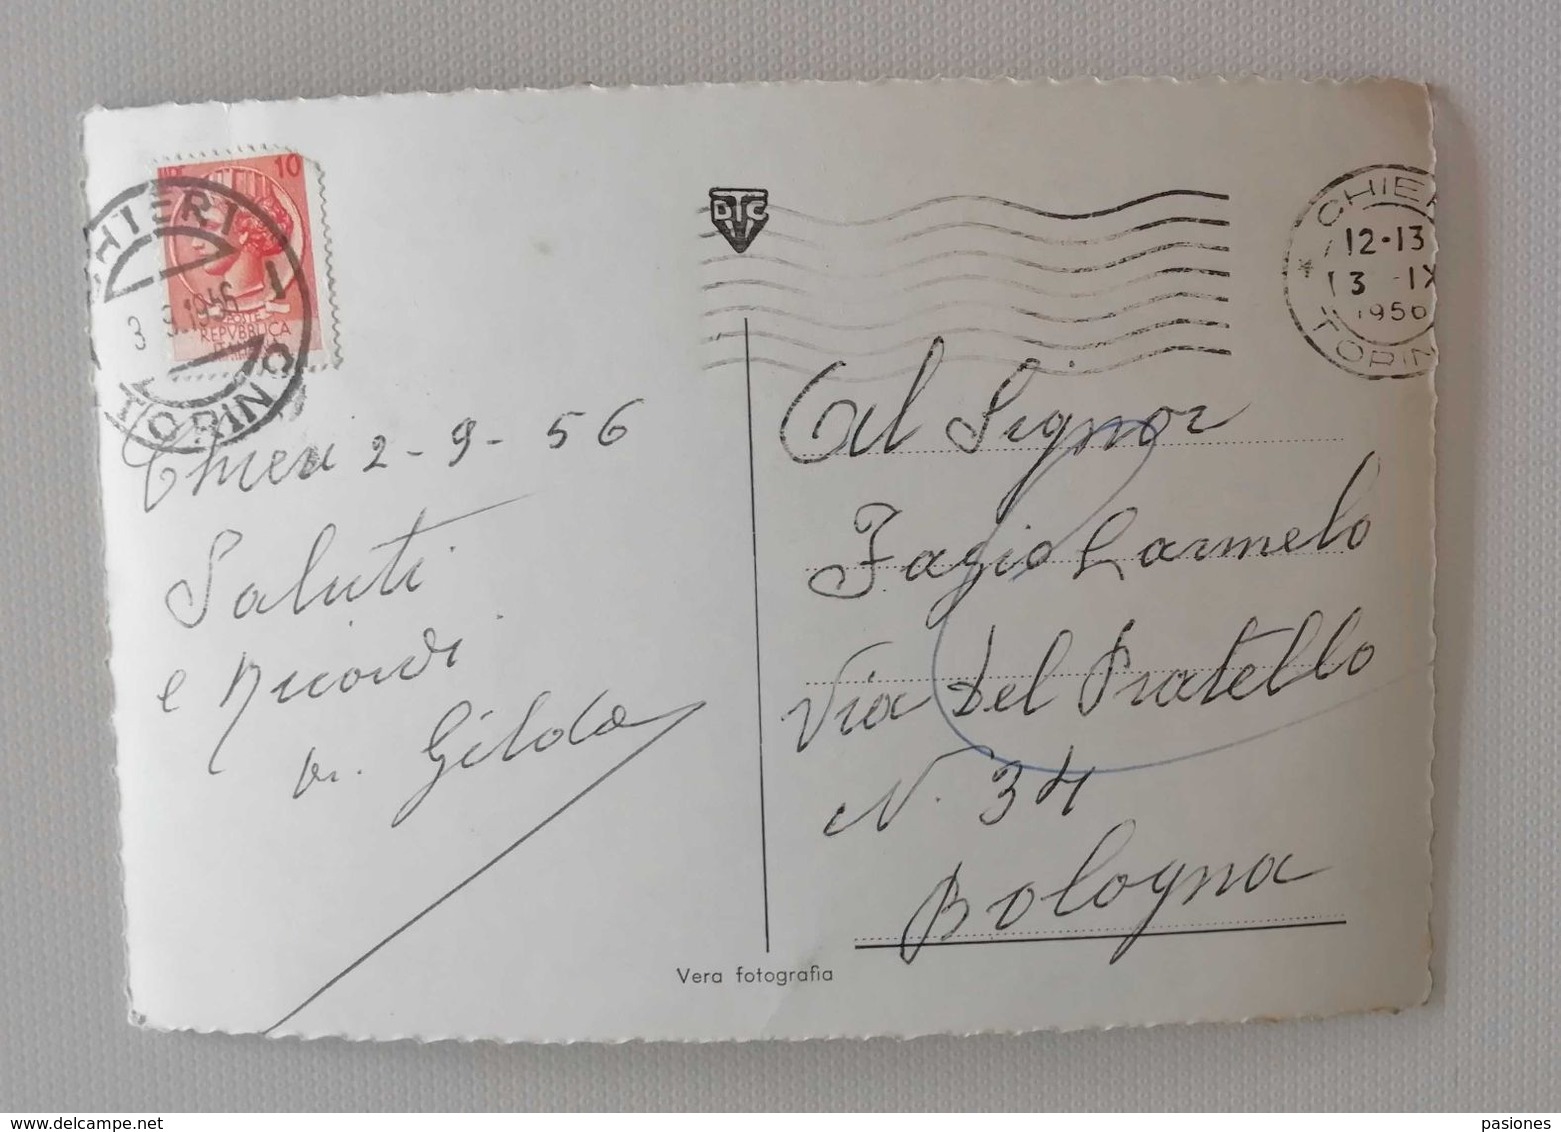 LIRE 10
POSTE
REPVBBLICA
ITALIANA
CHIERI
3 9.1956
TORINO
DTC
CHIERI
12-13
3 -IX
1956
TORINO
Chieri 2-9-56
Saluti
e Ricordi
Gilda
Al Signor
Fazio Carmelo
Via Del Pratello
N. 34
Bologna
Vera fotografia
www.delcampe.net
pasiones